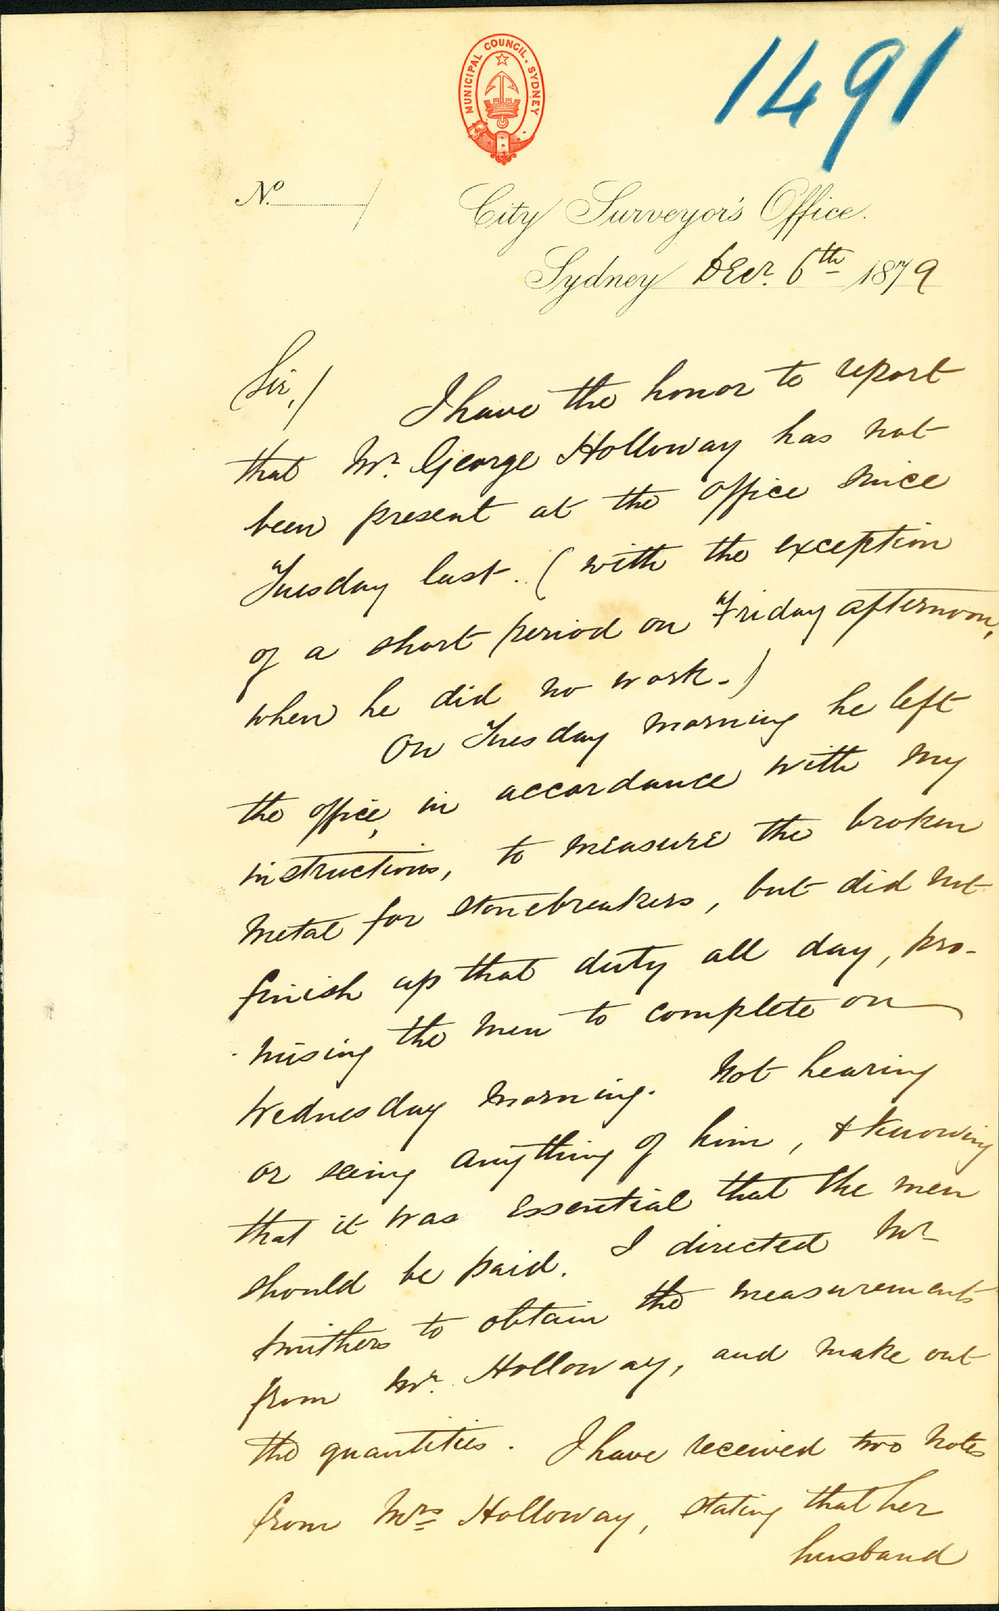 MUNICIPAL COUNCIL. SYDNEY
1491
No. /
City Surveyor's Office.
Sydney Decr. 6th 1879
Sir,/ I have the honor to report
that Mr. George Holloway has not
been present at the office since
Tuesday last. (with the exception
of a short period on Friday afternoon,
when he did no work.)
On Tuesday morning he left
the office, in accordance with my
instructions, to measure the broken
metal for stonebreakers, but did not
finish up that duty all day, pro-
mising the men to complete on
Wednesday morning. Not hearing
or seeing anything of him, & knowing
that it was essential that the men
should be paid. I directed Mr
Smithers to obtain the measurements
from Mr. Holloway, and make out
the quantities. I have received two notes
from Mrs Holloway, stating that her
husband